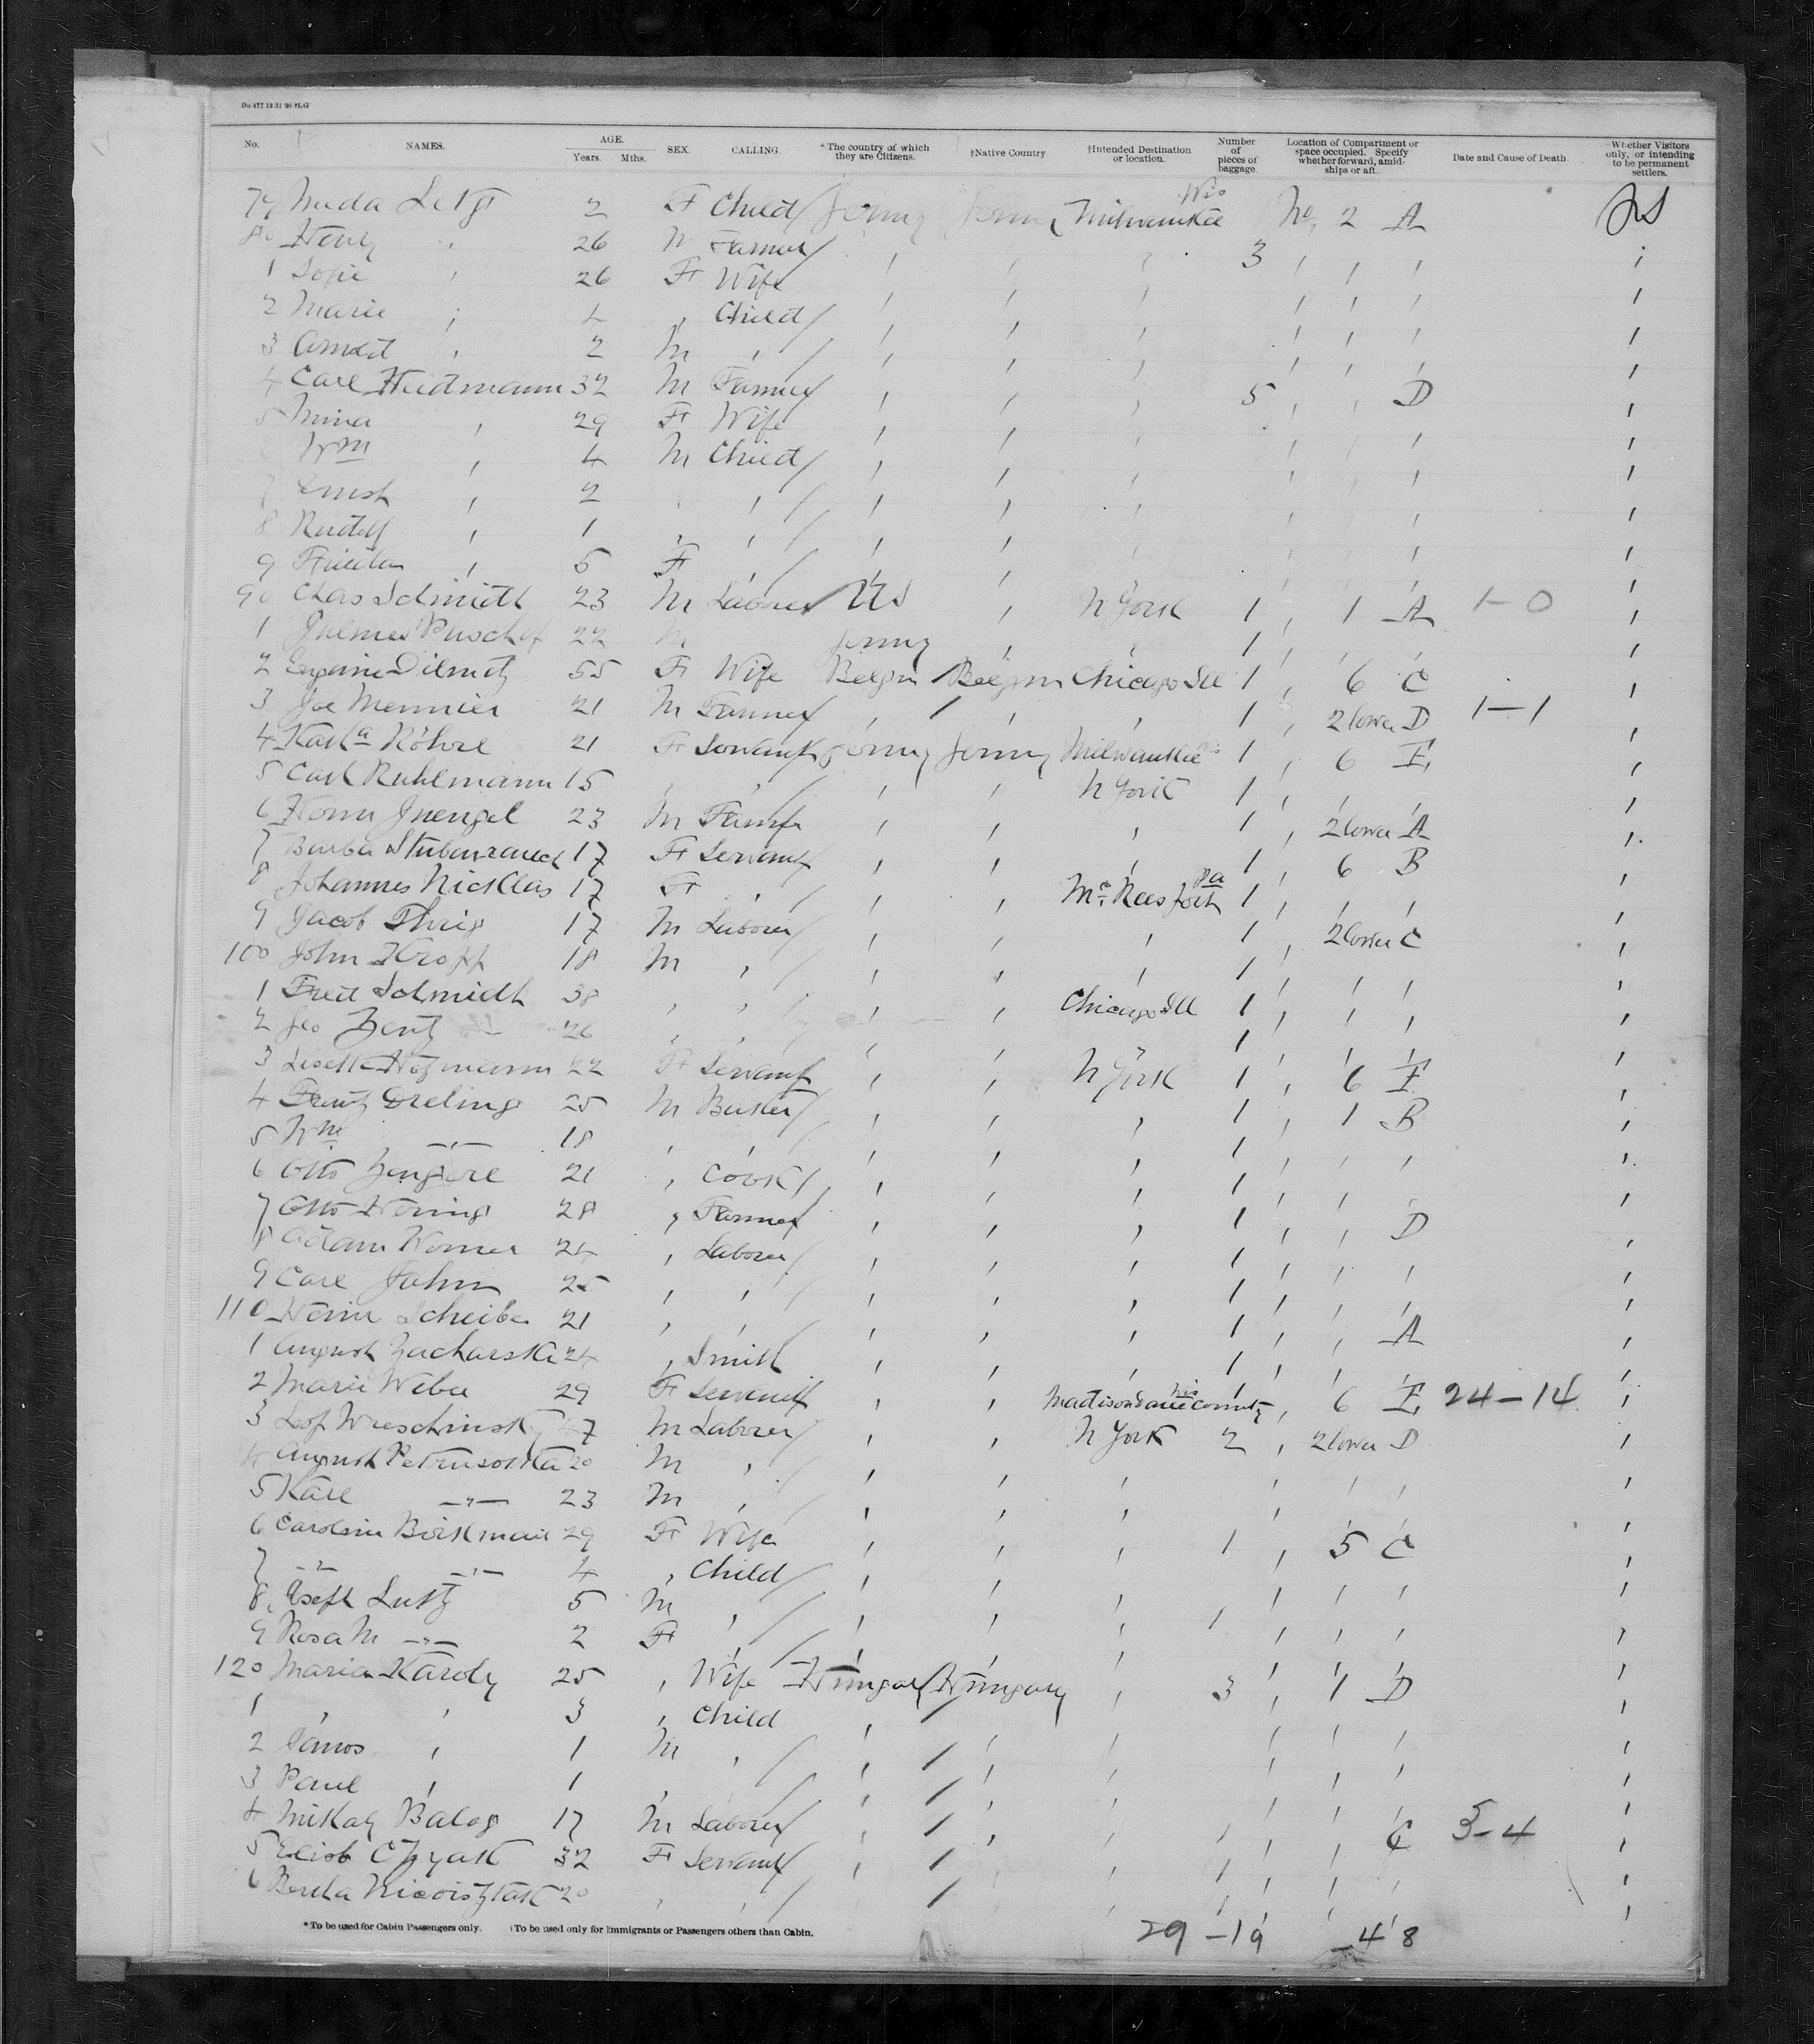 No. NAMES. AGE. Years. Mths. SEX. CALLING. *The country of which they are Citizens. †Native Country †Intended Destination or location. Number of pieces of baggage. Location of Compartment or space occupied. Specify whether forward, amidships or aft. Date and Cause of Death Whether Visitors only, or intending to be permanent settlers.
79 2 F Child Germy Germy Milwaukee Wis No. 2 A
80 Henry " 26 M Farmer " " " 3 " " " "
1 Sofie " 26 F Wife " " " " " " "
2 Marie " 4 " Child " " " " " " "
3 " 2 M " " " " " " " "
4 Carl Heidmann 32 M Farmer " " " 5 " " D "
5 Mina " 29 F Wife " " " " " " "
Wm " 4 M Child " " " " " " "
7 Ernst " 2 " " " " " " " " "
8 Rudolf " 1 " " " " " " " " "
9 Frieda " 5 F " " " " " " " "
90 Chas Schmidt 23 M Laborer US " N York 1 " 1 A 1-0 "
1 22 M Germy " " 1 " " " "
2 55 F Wife Belgm Belgm Chicago Ill 1 " 6 C "
3 Joe Mennier 21 M Farmer " " " 1 " 2 lower D 1-1 "
4 Karla Röhrl 21 F Servant Germy Germy Milwaukee 1 " 6 E "
5 Carl Ruhlmann 15 " " " " N York 1 " " " "
6 23 M Farmer " " " 1 " 2 lower A "
7 Stubenrauch 17 F Servant " " " 1 " 6 B "
8 Johannes Nicklas 17 F " " " McKeesport Pa 1 " " " "
9 Jacob Ihrig 17 M Laborer " " " 1 " 2 lower C "
100 John Kropp 18 M " " " " 1 " " " "
1 Fred Schmidt 38 " " " " Chicago Ill 1 " " " "
2 Geo Zentz 26 " " " " " 1 " " " "
3 Lisette Hofmann 22 F Servant " " N York 1 " 6 E "
4 Frantz Greling 25 M Baker " " " 1 " 1 B "
5 Wm —"— 18 " " " " " 1 " " " "
6 Otto 21 " Cook " " " 1 " " " "
7 Otto Hering 28 " Farmer " " " 1 " " D "
8 Adam Werner 24 " Laborer " " " 1 " " " "
9 Carl Jahn 25 " " " " " 1 " " " "
110 Scheibe 21 " " " " " 1 " " A "
1 August Zacharska 24 " Smith " " " 1 " " " "
2 Marie Weber 29 F Servant " " Madison Dane County Wis 1 " 6 E 24-14 "
3 Wreschinsky 47 M Laborer " " N York 2 " 2 lower D "
4 August 20 M " " " " " " " "
5 Karl —"— 23 M " " " " " " " "
6 Carolin Birkmair 29 F Wife " " " 1 " 5 C "
7 —"— —"— 4 " Child " " " " " " "
8 Josefh Lutz 5 M " " " " 1 " " " "
9 Rosa M —"— 2 F " " " " " " " "
120 Maria Karoly 25 " Wife Hungary Hungary " 3 " 1 D "
1 " " 3 " Child " " " " " " "
2 Janos " 1 M " " " " " " " "
3 Paul " 1 " " " " " " " " "
4 Mikaly Balog 17 M Laborer " " " " " C 5-4 "
5 32 F Servant " " " " " " " "
6 20 " " " " " " " " "
*To be used for Cabin Passengers only. †To be used only for Immigrants or Passengers others than Cabin.
29 -19 -48